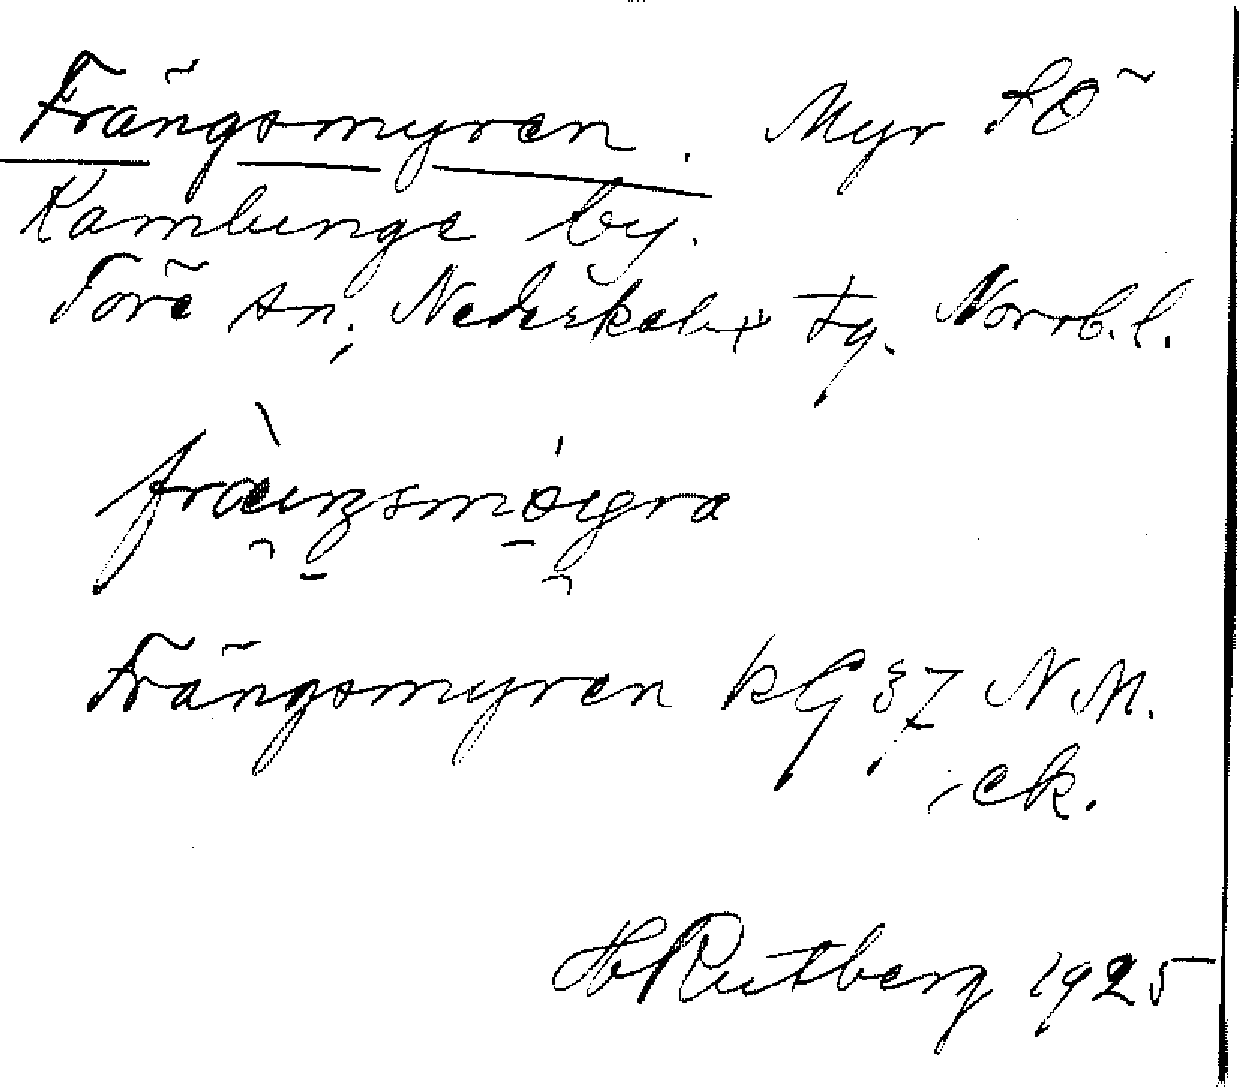 Frängsmyren. Myr SÖ
Kamlunge by.
Töre sn, Nederkalix tg. Norrb. l.
fràinzsmöyra
Frängsmyren kG 37 N.M.
ck.
H Rutberg 1925